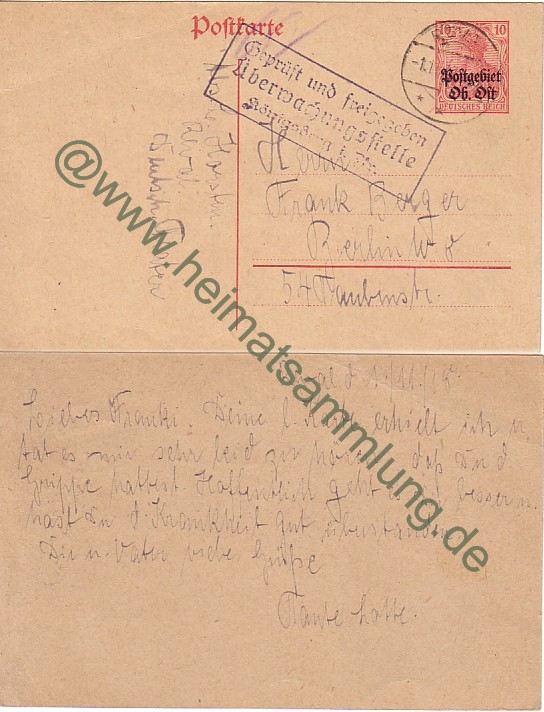 Postkarte
10 10
Postgebiet
Ob. Ost
DEUTSCHES REICH
Geprüft und freigegeben
Überwachungsstelle
Königsberg i. Pr.
Reval
Deutsches Theater
Herrn
Frank Berger
Berlin W 8
54 Taubenstr.
Reval d 1/11/18
Liebes Franki. Deine l. Karte erhielt ich u.
tat es mir sehr leid zu hören, daß Du d
Grippe hattest. Hoffentlich geht es besser u.
hast Du d Krankheit gut überstanden
Dir u. Vater viele Grüße
Tante Lotte.
@www.heimatsammlung.de